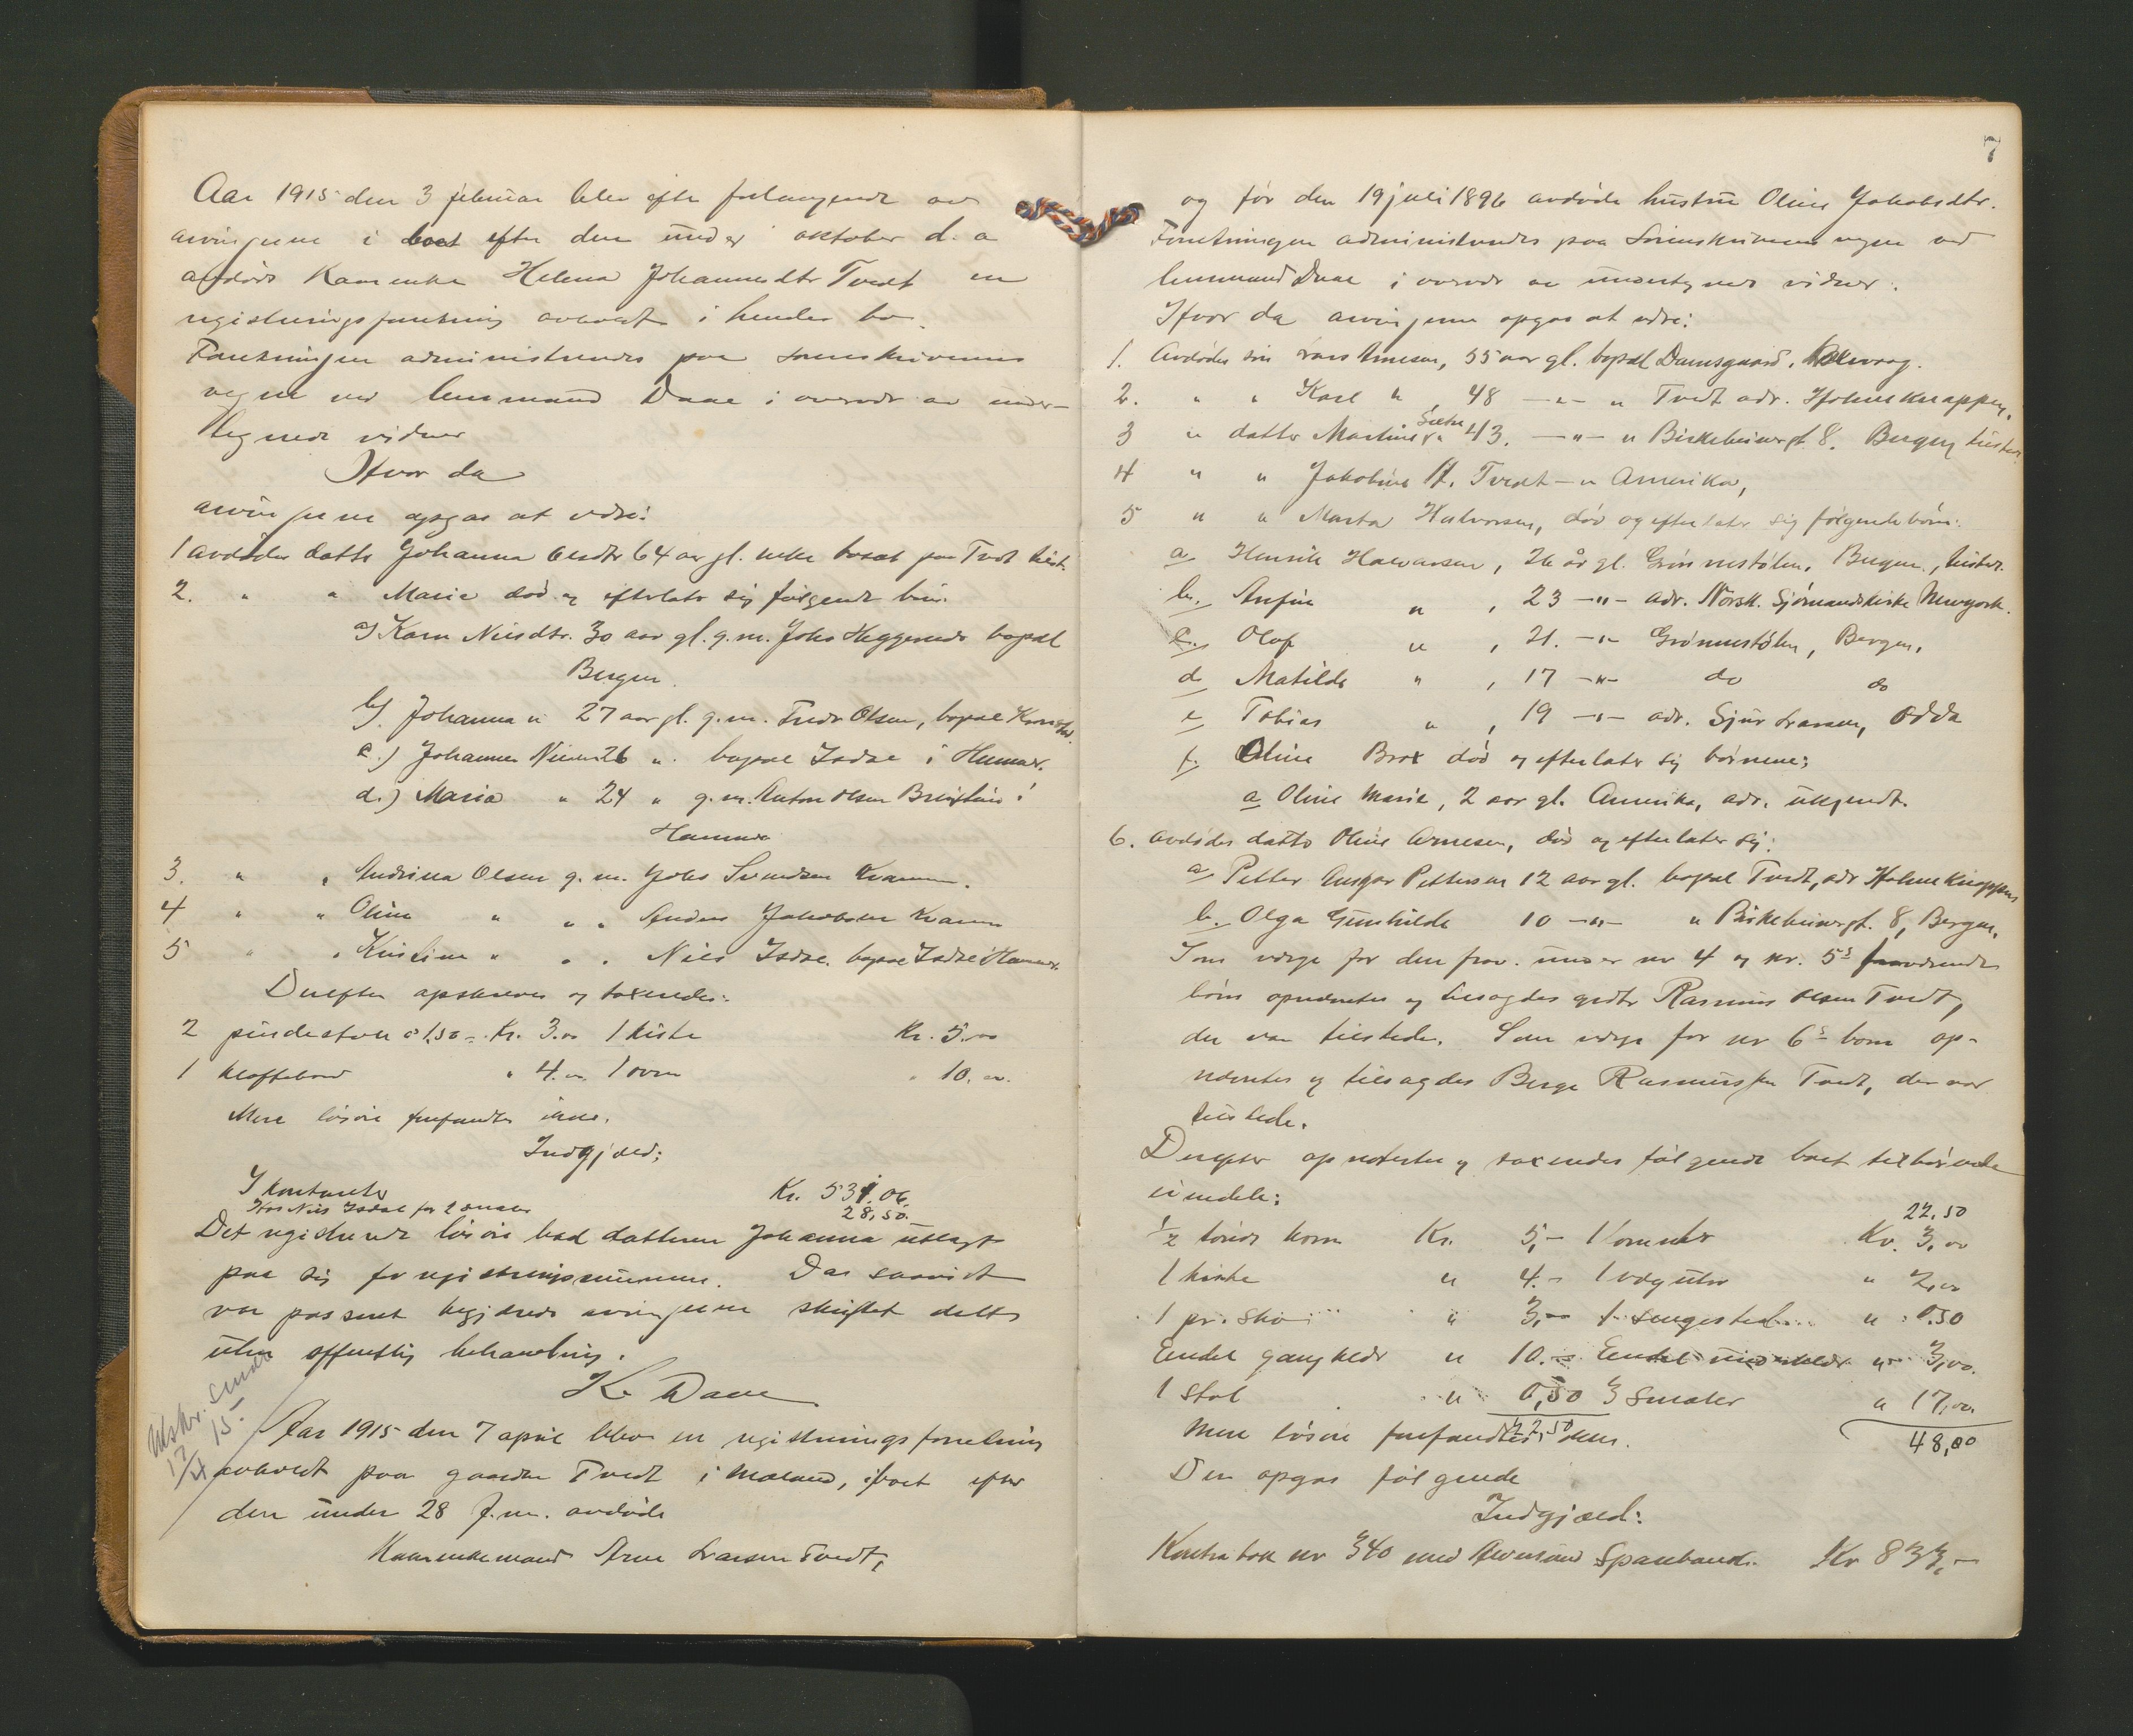 Aar 1915 den 3 februar blev efter forlangende av
arvingerne i boet efter den under oktober d. a
afdøde Kaarenke Helena Johannesdtr Tvedt en
registreringsforretning avholdt i hendes bo.
Forretningen administreredes paa sorenskriverens
vegne ved lensmand Daae i overvær av under-
tegnede vidner
Hvor da
arvingerne opgas at være:
1 avdødes datter Johanna Olsdtr 64 aar gl. enke bosat paa Tvedt tilst.
2. " " Marie død og efterlater sig følgende børn.
a) Karen Nilsdtr. 30 aar gl. g.m. Johs Heggernes bopæl
Bergen.
b) Johanna " 27 aar gl. g.m. Fredr Olsen, bopæl
c.) Johannes Nilsen 26 " bopæl Isdal i Hammer.
d.) Maria " 24 " g.m. Anton Olsen Breistein i
Hammer
3. " " Andrina Olsen g.m. Johs Svendsen Kvamme.
4 " " Oline " " " Anders Jakobsen Kvamme
5 " " Kristine " " " Nils Isdal. bopæl Isdal i Hammer.
Derefter opskreves og taxeredes:
2 pindestole à 1,50 = Kr. 3.00 1 kiste Kr. 5.00
1 klaffebord " 4.00 1 ovn " 10.00
Mere løsøre forfandtes ikke.
Indgjæld:
I kontanter Kr. 531.06
Hos Nils Isdal for 2 smaler 28,50.
Det registrerede løsøre bad datteren Johanna utlagt
paa sig for registreringssummene. Da saavidt
var passert begjærede arvingerne skiftet delt
uten offentlig behandling.
K. Daae
Utskr. sendt
17/4 15
Aar 1915 den 7 april blev en registreringsforretning
avholdt paa gaarden Tvedt i Mæland, i boet efter
den under 28 f.m. avdøde
Kaarenkemand Arne Larsen Tvedt,
7
og før den 19 juli 1896 avdøde hustru Oline Jakobsdtr.
Forretningen administreredes paa Sorenskriverens vegne ved
lensmand Daae i overvær av undertegnede vidner.
Hvor da arvingerne opgas at være:
1. Avdødes søn Lars Arnesen, 55 aar gl. bopæl Damsgaard, Laksevaag.
2. " " Karl " , 48 -"- " Tvedt adr. Hjelmeknappen.
3 " datter Martine Sætre " 43. -"- " Birkebeinergt. 8. Bergen, tilstede.
4 " " Jakobine A. Tvedt -" Amerika,
5 " " Marta Halvorsen, død og efterlater sig følgende børn:
a Henrik Halvorsen, 26 år gl. Grønnestølen, Bergen, tilstede.
b. Anfin " , 23 -"- adr. Norsk. Sjømandskirke Newyork.
c. Olaf " , 21. -"- Grønnestølen, Bergen.
d Matilde " , 17 -"- do do
e Tobias " , 19 -"- adr. Sjur Larsen, Odda
f. Oline Brox død og efterlater sig børnene:
a Oline Marie, 2 aar gl. Amerika, adr. ukjendt.
6. avdødes datter Oline Arnesen, død og efterlater sig:
a Petter Ansgar Pettersen 12 aar gl. bopæl Tvedt, adr Hjelmeknappen
b. Olga Gunhilde 10 -"- " Birkebeinergt. 8, Bergen.
Som verge for den frav. under nr 4 og nr. 5s fraværende
børn opnævntes og tilsagdes grdbr Rasmus Olsen Tvedt,
der var tilstede. Som verge for nr 6s børn op-
nævntes og tilsagdes Berge Rasmussen Tvedt, der var
tilstede.
Derefter opnotertes og taxeredes følgende boet tilhørende
eiendele:
22,50
1/2 tønde korn Kr. 5,- 1 Kr. 3,00
1 kiste " 4.- 1 vægur " 2,00
1 pr. sko " 3,- 1 sengested " 0.50
Endel gangklær " 10.- Endel underklær " 3,00.
1 stol " 0,50 3 smaler " 17,00
22,50
Mere løsøre forfandtes ikke. 48,00
Der opgas følgende
Indgjæld:
Kontrabok nr 340 med Aalesund Sparebank. Kr 833,-